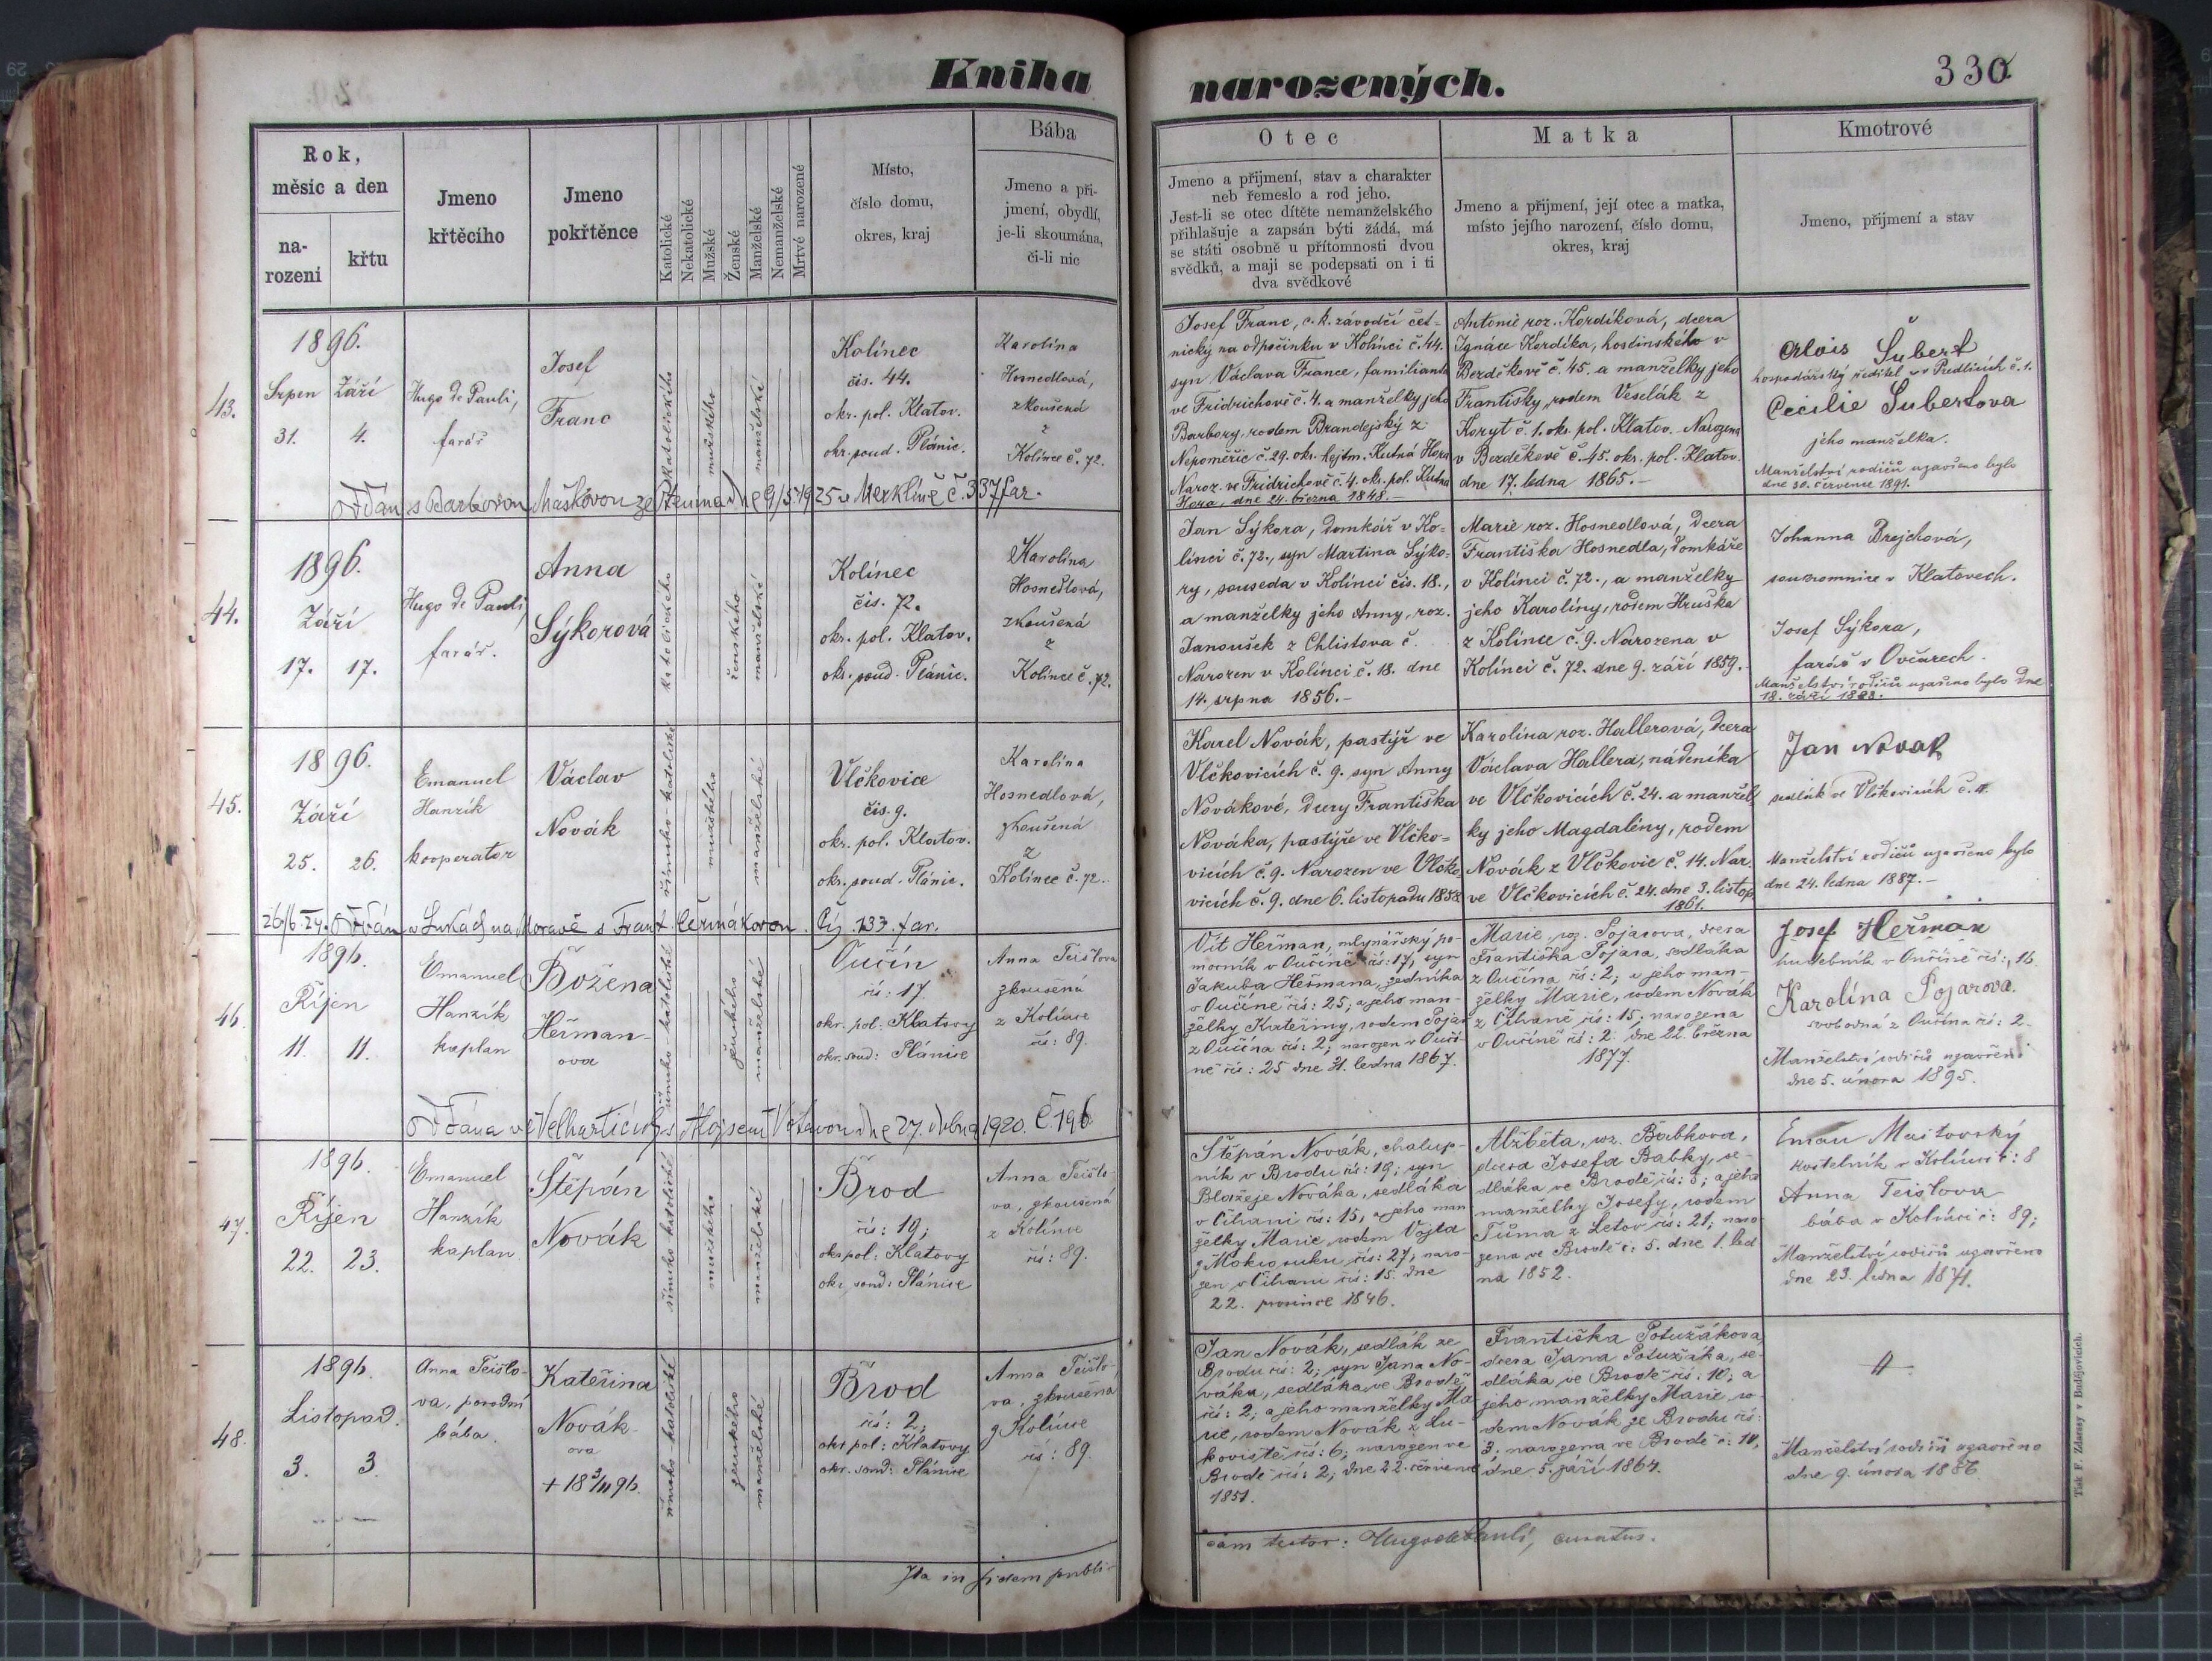 Kniha
narozených.
330
Rok,
měsíc a den
na-
rozeni
křtu
Jmeno
křtěcího
Jmeno
pokřtěnce
Katolické
Nekatolické
Mužské
Ženské
Manželské
Nemanželské
Mrtvé narozené
Místo,
číslo domu,
okres, kraj
Bába
Jmeno a při-
jmení, obydlí,
je-li skoumána,
či-li nic
Otec
Jmeno a přijmení, stav a charakter
neb řemeslo a rod jeho.
Jest-li se otec dítěte nemanželského
přihlašuje a zapsán býti žádá, má
se státi osobně u přítomnosti dvou
svědků, a mají se podepsati on i ti
dva svědkové
Matka
Jmeno a přijmení, její otec a matka,
místo jejího narození, číslo domu,
okres, kraj
Kmotrové
Jmeno, přijmení a stav
43.
1896.
Srpen Září
31. 4.
Hugo de Pauli,
farář
Josef
Franc
katolického
mužského
manželské
Kolínec
čis. 44.
okr. pol. Klatov.
okr. soud. Plánic.
Karolína
Hosnedlová,
zkoušená
z
Kolínce č. 72.
Josef Franc, c. k. závodčí čet-
nický na odpočinku v Kolínci č. 44.
syn Václava France, familianta
ve Fridrichově č. 4. a manželky jeho
Barbory, rodem Brandejský z
Nepoměřic č. 29. okr. hejtm. Kutná Hora
Naroz. ve Fridrichově č. 4. okr. pol. Kutná
Hora, dne 24. března 1848.-
Antonie roz. Kordíková, dcera
Ignáce Kordíka, hostinského v
Bezděkově č. 45. a manželky jeho
Františky, rodem Veselák z
Koryt č. 1. okr. pol. Klatov. Narozena
v Bezděkově č. 45. okr. pol. Klatov.
dne 17. ledna 1865.-
Alois Šubert
hospodářský ředitel v Předlicích č. 1.
Cecilie Šubertova
jeho manželka.
Manželství rodičů uzavřeno bylo
dne 30. července 1891.
Oddán s Barborou Maškovou ze Ptenína dne 9/5 1925 v Merklíně č. 337 far.
44.
1896.
Září
17. 17.
Hugo de Pauli,
farář.
Anna
Sýkorová
katolického
ženského
manželské
Kolínec
čis. 72.
okr. pol. Klatov.
okr. soud. Plánic.
Karolína
Hosnedlová,
zkoušená
z
Kolínce č. 72.
Jan Sýkora, domkář v Ko-
línci č. 72., syn Martina Sýko-
ry, souseda v Kolínci čis. 18.,
a manželky jeho Anny, roz.
Janoušek z Chlistova č.
Narozen v Kolínci č. 18. dne
14. srpna 1856.-
Marie roz. Hosnedlová, dcera
Františka Hosnedla, domkáře
v Kolínci č. 72., a manželky
jeho Karolíny, rodem Hruška
z Kolínce č. 9. Narozena v
Kolínci č. 72. dne 9. září 1859.-
Johanna Brejchová,
soukromnice v Klatovech.
Josef Sýkora,
farář v Ovčarech.
Manželství rodičů uzavřeno bylo dne
18. září 1883.
45.
1896.
Září
25. 26.
Emanuel
Hanzík
kooperator
Václav
Novák
římsko-katolické
mužského
manželské
Vlčkovice
čis. 9.
okr. pol. Klatov.
okr. soud. Plánic.
Karolína
Hosnedlová,
zkoušená
z
Kolínce č. 72.
Karel Novák, pastýř ve
Vlčkovicích č. 9. syn Anny
Novákové, dcery Františka
Nováka, pastýře ve Vlčko-
vicích č. 9. Narozen ve Vlčko
vicích č. 9. dne 6. listopadu 1858
Karolína roz. Hallerová, dcera
Václava Hallera, nádeníka
ve Vlčkovicích č. 24. a manžel
ky jeho Magdalény, rodem
Novák z Vlčkovic č. 14. Nar.
ve Vlčkovicích č. 24. dne 3. listop.
1861.
Jan Novák
sedlák ve Vlčkovicích č. 11.
Manželství rodičů uzavřeno bylo
dne 24. ledna 1887.-
26/6. 24. Oddán v Lukách na Moravě s Frant. Čermákovou. Čís. 133. far.
46.
1896.
Říjen
11. 11.
Emanuel
Hanzík
kaplan
Božena
Heřman-
ova
římsko-katolické
ženského
manželské
Oučín
čís: 17.
okr. pol: Klatovy
okr. soud: Plánice
Anna Teislova
zkoušená
z Kolince
čís: 89.
Vít Heřman, mlynářský po-
mocník v Oučíně čís: 17, syn
Jakuba Heřmana, zedníka
v Oučíně čís: 25; a jeho man-
želky Kateřiny, rodem Pojar
z Oučína čís: 2; narozen v Oučí-
ně čís: 25 dne 31. ledna 1867.
Marie, roz. Pojarova, dcera
Františka Pojara, sedláka
z Oučína čís: 2; a jeho man-
želky Marie, rodem Novák
z Čihaně čís: 15; narozena
v Oučíně čís: 2. dne 22. března
1877.
Josef Heřman
hudebník v Oučíně čís: 16
Karolína Pojarova.
svobodná z Oučína čís: 2.
Manželství rodičů uzavřeno
dne 5. února 1895.
Oddána ve Velharticích s Aloisem Votavou dne 27. dubna 1920. Č. 196
47.
1896.
Říjen
22. 23.
Emanuel
Hanzík
kaplan
Štěpán
Novák
římsko katolické
mužského
manželské
Brod
čís: 19;
okr. pol: Klatovy
okr. soud: Plánice
Anna Teislo-
va, zkoušená
z Kolince
čís: 89.
Štěpán Novák, chalup-
ník v Brodu čís: 19; syn
Blažeje Nováka, sedláka
v Čihani čís: 15, a jeho man
želky Marie, rodem Vojta
z Mokrosuku čís: 27; naro-
zen v Čihani čís: 15. dne
22. prosince 1846.
Alžběta, roz. Babkova,
dcera Josefa Babky, se-
dláka ve Brodě čís: 5; a jeho
manželky Josefy, rodem
Tůma z Letov čís: 21; naro
zena ve Brodě č: 5. dne 1. led
na 1852.
Eman Maštovský
kostelník v Kolinci č: 8
Anna Teislova
bába v Kolinci č: 89;
Manželství rodičů uzavřeno
dne 23. ledna 1871.
48.
1896.
Listopad.
3. 3.
Anna Teislo-
va, porodní
bába.
Kateřina
Novák-
ova
+ 18 3/11 96.
římsko katolické
ženského
manželské
Brod
čís: 2;
okr. pol: Klatovy
okr. soud: Plánice
Anna Teislo-
va, zkoušená
z Kolince
čís: 89.
Jan Novák, sedlák ze
Brodu čís: 2; syn Jana No-
váka, sedláka ve Brodě
čís: 2; a jeho manželky Ma-
rie, rodem Novák z Lu-
koviště čís: 6; narozen ve
Brodě čís: 2; dne 22. července
1851.
Františka Potužákova,
dcera Jana Potužáka, se-
dláka ve Brodě čís: 10; a
jeho manželky Marie, ro-
dem Novák ze Brodu čís:
3. narozena ve Brodě č: 10,
dne 5. září 1864.
Manželství rodičů uzavřeno
dne 9. února 1886.
Ita in fidem publi-
cam testor: Hugo de Pauli, curatus.
Tisk F. Zdarssy v Budějovicích.